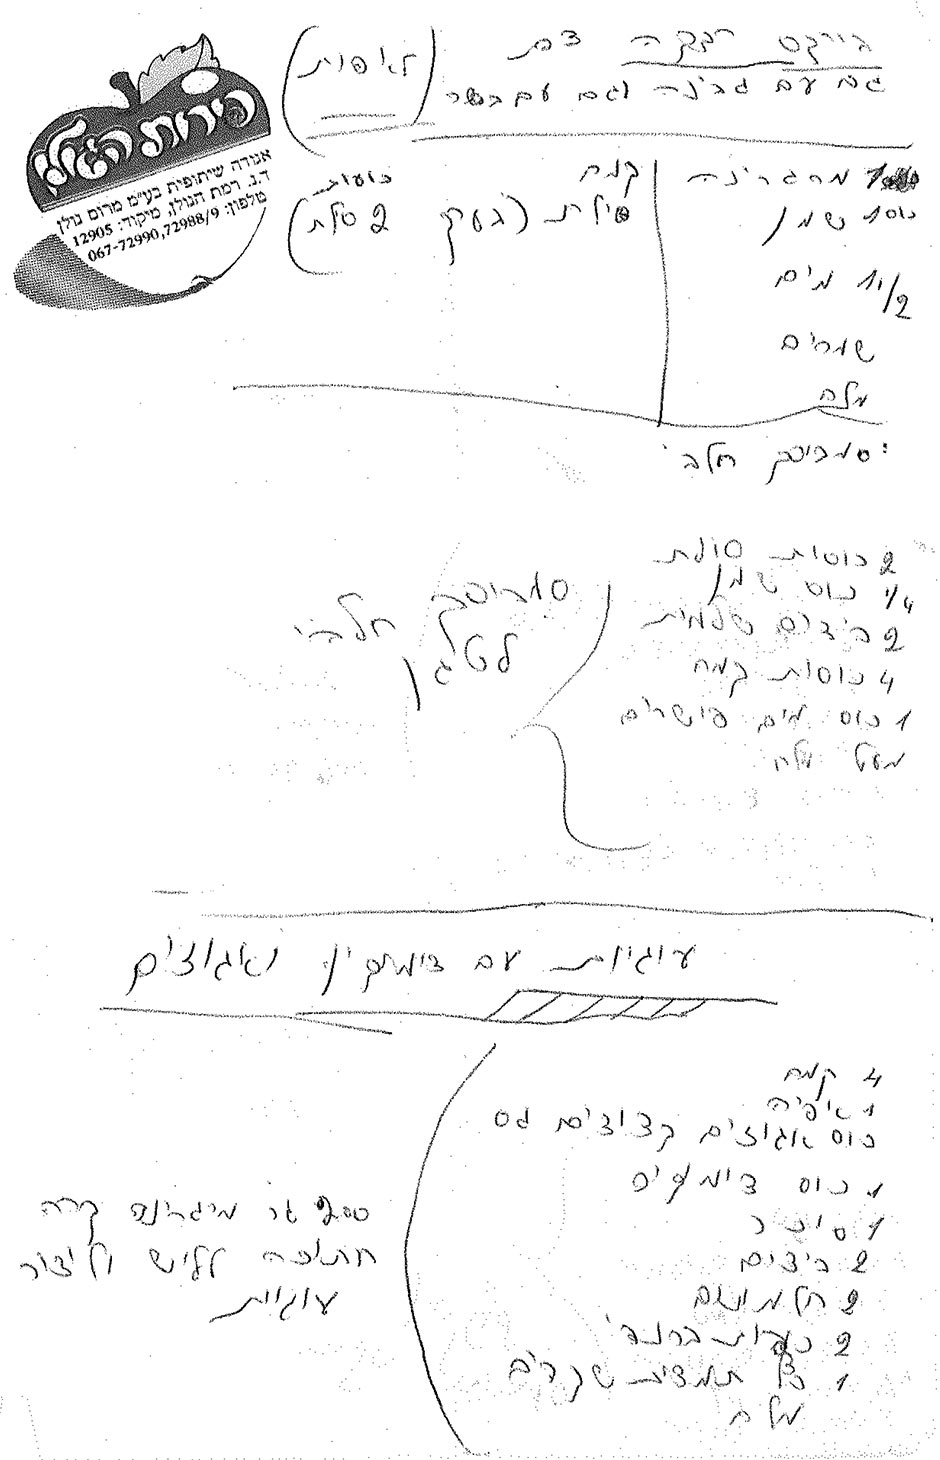 פירות הגולן
אגודה שיתופית בע"מ מרום גולן
ד.נ. רמת הגולן, מיקוד: 12905
טלפון: 067-72990,72988/9
בורקס
גם עם גבינה וגם עם בשר
(לאיפות)
1 מרגרינה
כוס 1 שמן
1/2 1 מים
שמרים
מלח
קמח
כוסות
סולת (בעיקר 2 סלת)
סמבוסק חלבי
2 כוסות סולת
1/4 כוס שמן
2 ביצים שלמות
4 כוסות קמח
1 כוס מים פושרים
מעט מלח
סמבוסק חלבי
לטגן
עוגיות עם צימוקין ואגוזים
4 קמח
1 אפיה
כוס אגוזים קצוצים גס
1 כוס צימוקים
1 סוכר
2 ביצים
2 חלמונים
2 כפות ברנדי
1 כף תמצית שקדים
מלח
200 גר מרגרינה קרה
חתוכה ללוש וליצור
עוגיות